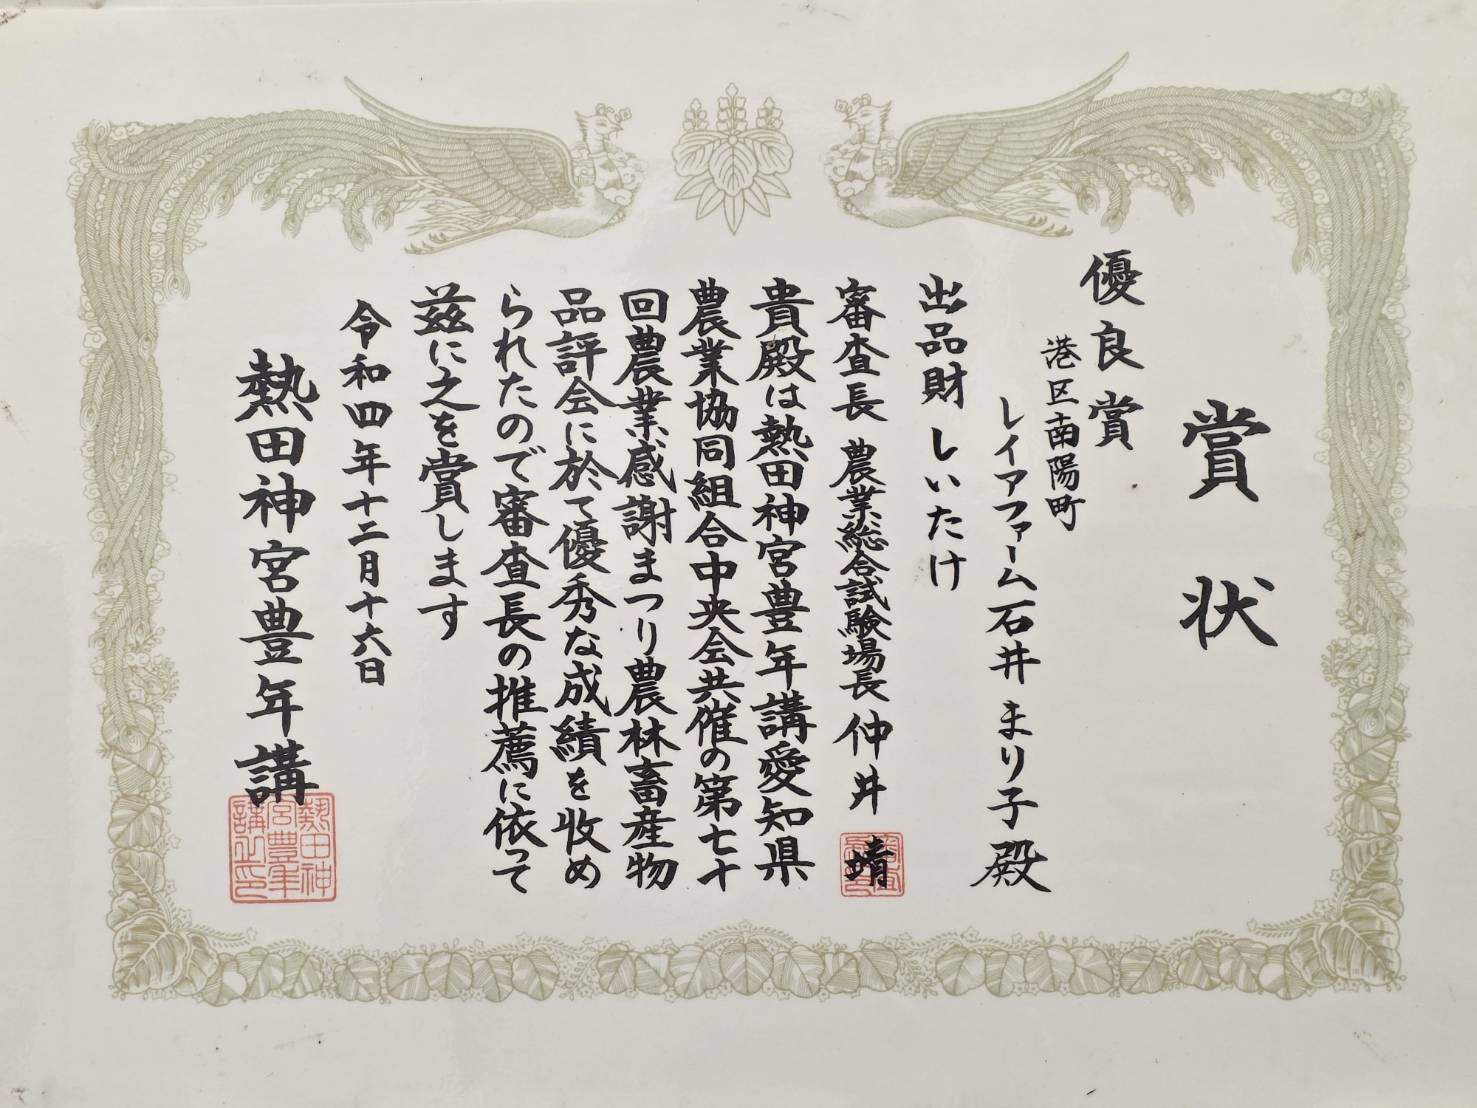 賞状
優良賞
港区南陽町
レイアファーム石井まり子殿
出品財しいたけ
審査長 農業総合試験場長 仲井 靖
貴殿は熱田神宮豊年講愛知県
農業協同組合中央会共催の第七十
回農業感謝まつり農林畜産物
品評会に於て優秀な成績を収め
られたので審査長の推薦に依って
茲に之を賞します
令和四年十二月十六日
熱田神宮豊年講
熱田神
宮豊年
講之印